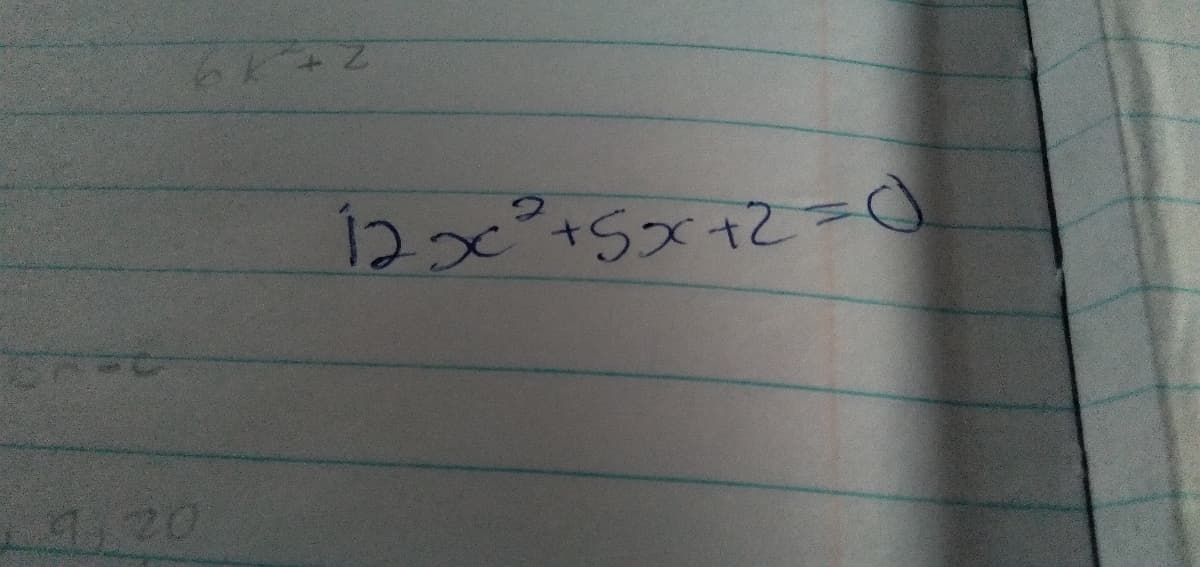 6k²+2
12x²+5x+2=0
9, 20